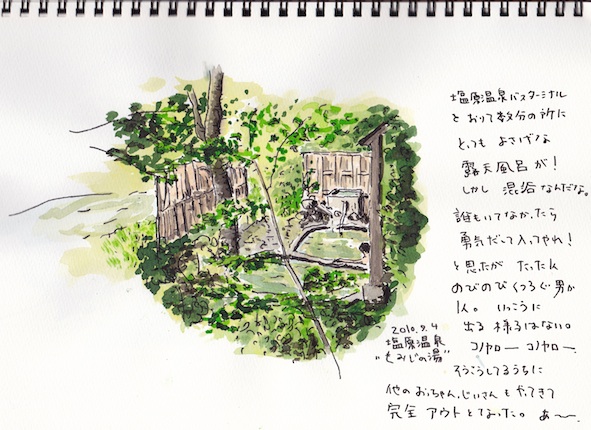 塩原温泉バスターミナル
とおって数分の所に
とっても よさげな
露天風呂が！
しかし 混浴なんだな。
誰もいてなかったら
勇気だって入ってやれ！
と思ったが たった人
のびのびくつろぐ男が
1人。 いっこうに
出る様子はない。
コノヤロー コノヤロー。
そうこうしてるうちに
他のおっちゃん、じいさんもやってきて
完全 アウトとなった。 あ〜〜。
2010.9.4
塩原温泉
"もみじの湯"